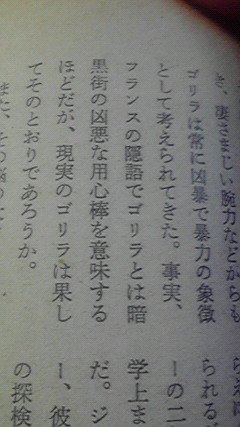 き、凄さまじい腕力などからも
ゴリラは常に凶暴で暴力の象徴
として考えられてきた。事実、
フランスの隠語でゴリラとは暗
黒街の凶悪な用心棒を意味する
ほどだが、現実のゴリラは果し
てそのとおりであろうか。
また、その
られる
ーの二
学上ま
だ。ジ
ー、彼
の探検